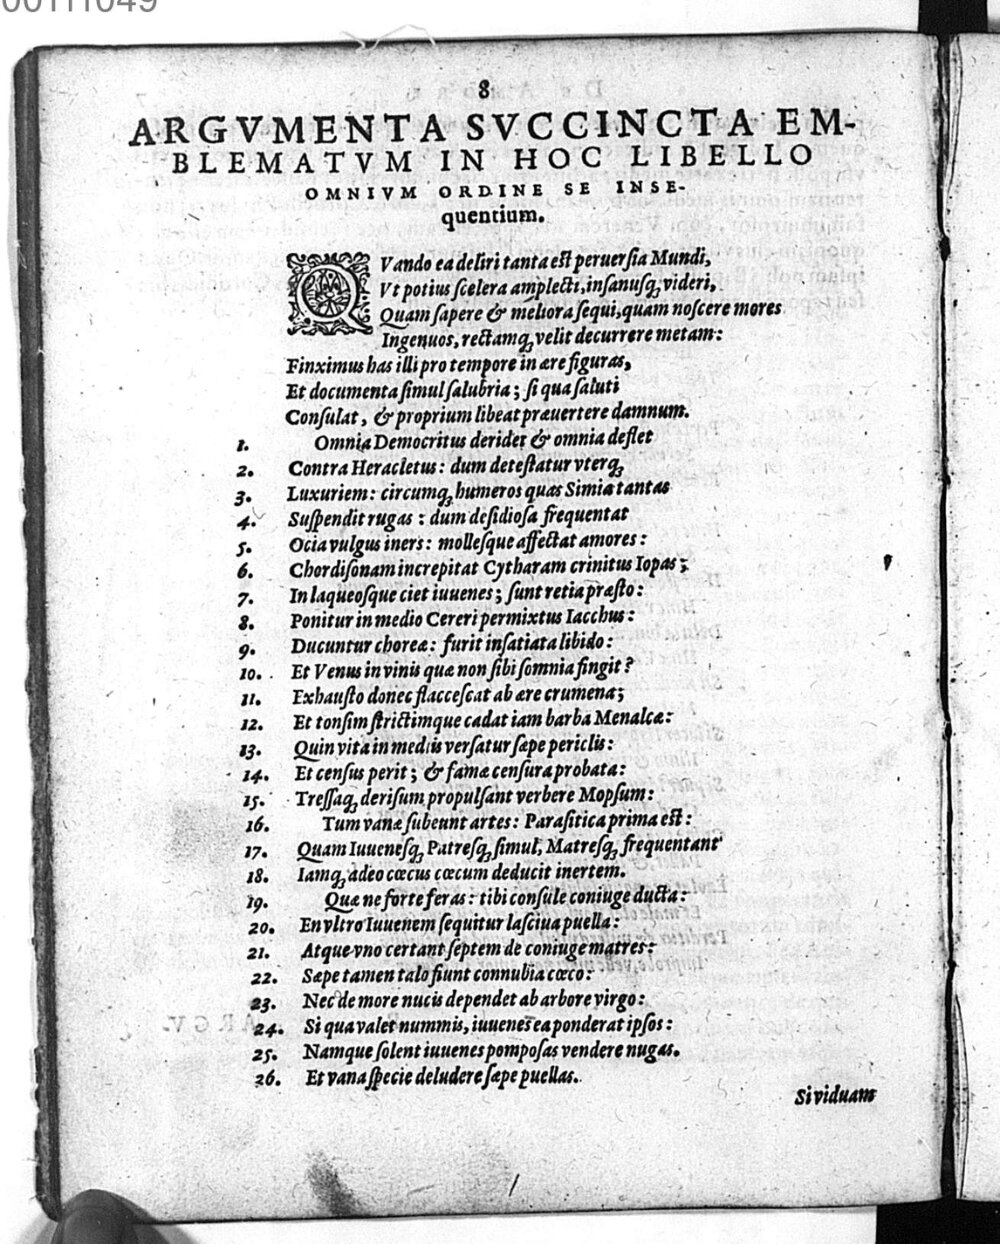 00111049
8
ARGVMENTA SVCCINCTA EM-
BLEMATVM IN HOC LIBELLO
OMNIVM ORDINE SE INSE-
quentium.
QVando ea deliri tanta est peruersia Mundi,
Vt potius scelera amplecti, insanusq; videri,
Quam sapere & meliora sequi, quam noscere mores
Ingenuos, rectamq; velit decurrere metam:
Finximus has illi pro tempore in ære figuras,
Et documenta simul salubria; si qua saluti
Consulat, & proprium libeat præuertere damnum.
1. Omnia Democritus deridet & omnia deflet
2. Contra Heracletus: dum detestatur vterq;
3. Luxuriem: circumq; humeros quas Simia tantas
4. Suspendit rugas: dum desidiosa frequentat
5. Ocia vulgus iners: mollesque affectat amores:
6. Chordisonam increpitat Cytharam crinitus Iopas;
7. In laqueosque ciet iuuenes; sunt retia præsto:
8. Ponitur in medio Cereri permixtus Iacchus:
9. Ducuntur choreæ: furit insatiata libido:
10. Et Venus in vinis quæ non sibi somnia fingit?
11. Exhausto donec flaccescat ab ære crumena;
12. Et tonsim strictimque cadat iam barba Menalcæ:
13. Quin vita in mediis versatur sæpe periclis:
14. Et census perit; & famæ censura probata:
15. Tressaq; derisum propulsant verbere Mopsum:
16. Tum vanæ subeunt artes: Parasitica prima est:
17. Quam Iuuenesq; Patresq; simul, Matresq; frequentant
18. Iamq; adeo cœcus cœcum deducit inertem.
19. Quæ ne forte feras: tibi consule coniuge ducta:
20. En vltro Iuuenem sequitur lasciua puella:
21. Atque vno certant septem de coniuge matres:
22. Sæpe tamen talo fiunt connubia cœco:
23. Nec de more nucis dependet ab arbore virgo:
24. Si qua valet nummis, iuuenes ea ponderat ipsos:
25. Namque solent iuuenes pomposas vendere nugas.
26. Et vana specie deludere sæpe puellas.
Si viduam